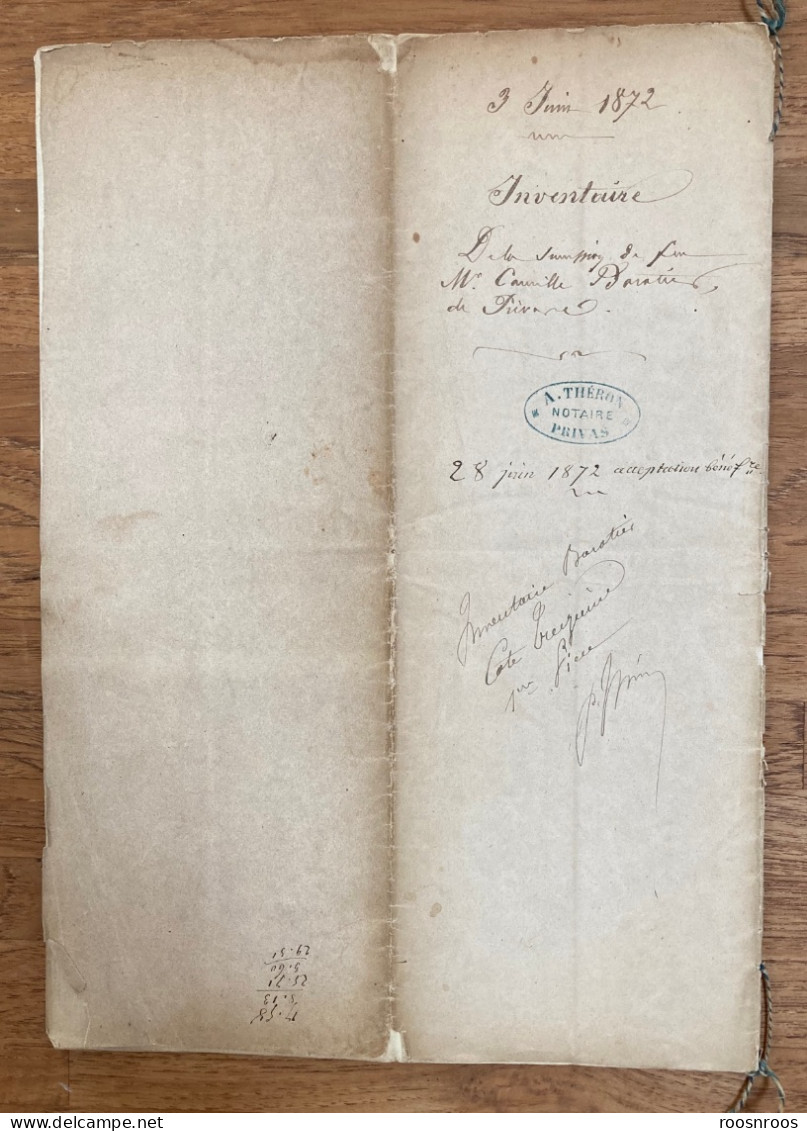 3 Juin 1872
Inventaire
De la succession de feu
Mr. Camille Baratier,
de Privas.
A. THÉRON
NOTAIRE
PRIVAS
28 juin 1872 acceptation bénéfre
Inventaire Baratier
Cote
1re Pièce
29.31
3.60
25.71
roosnroos